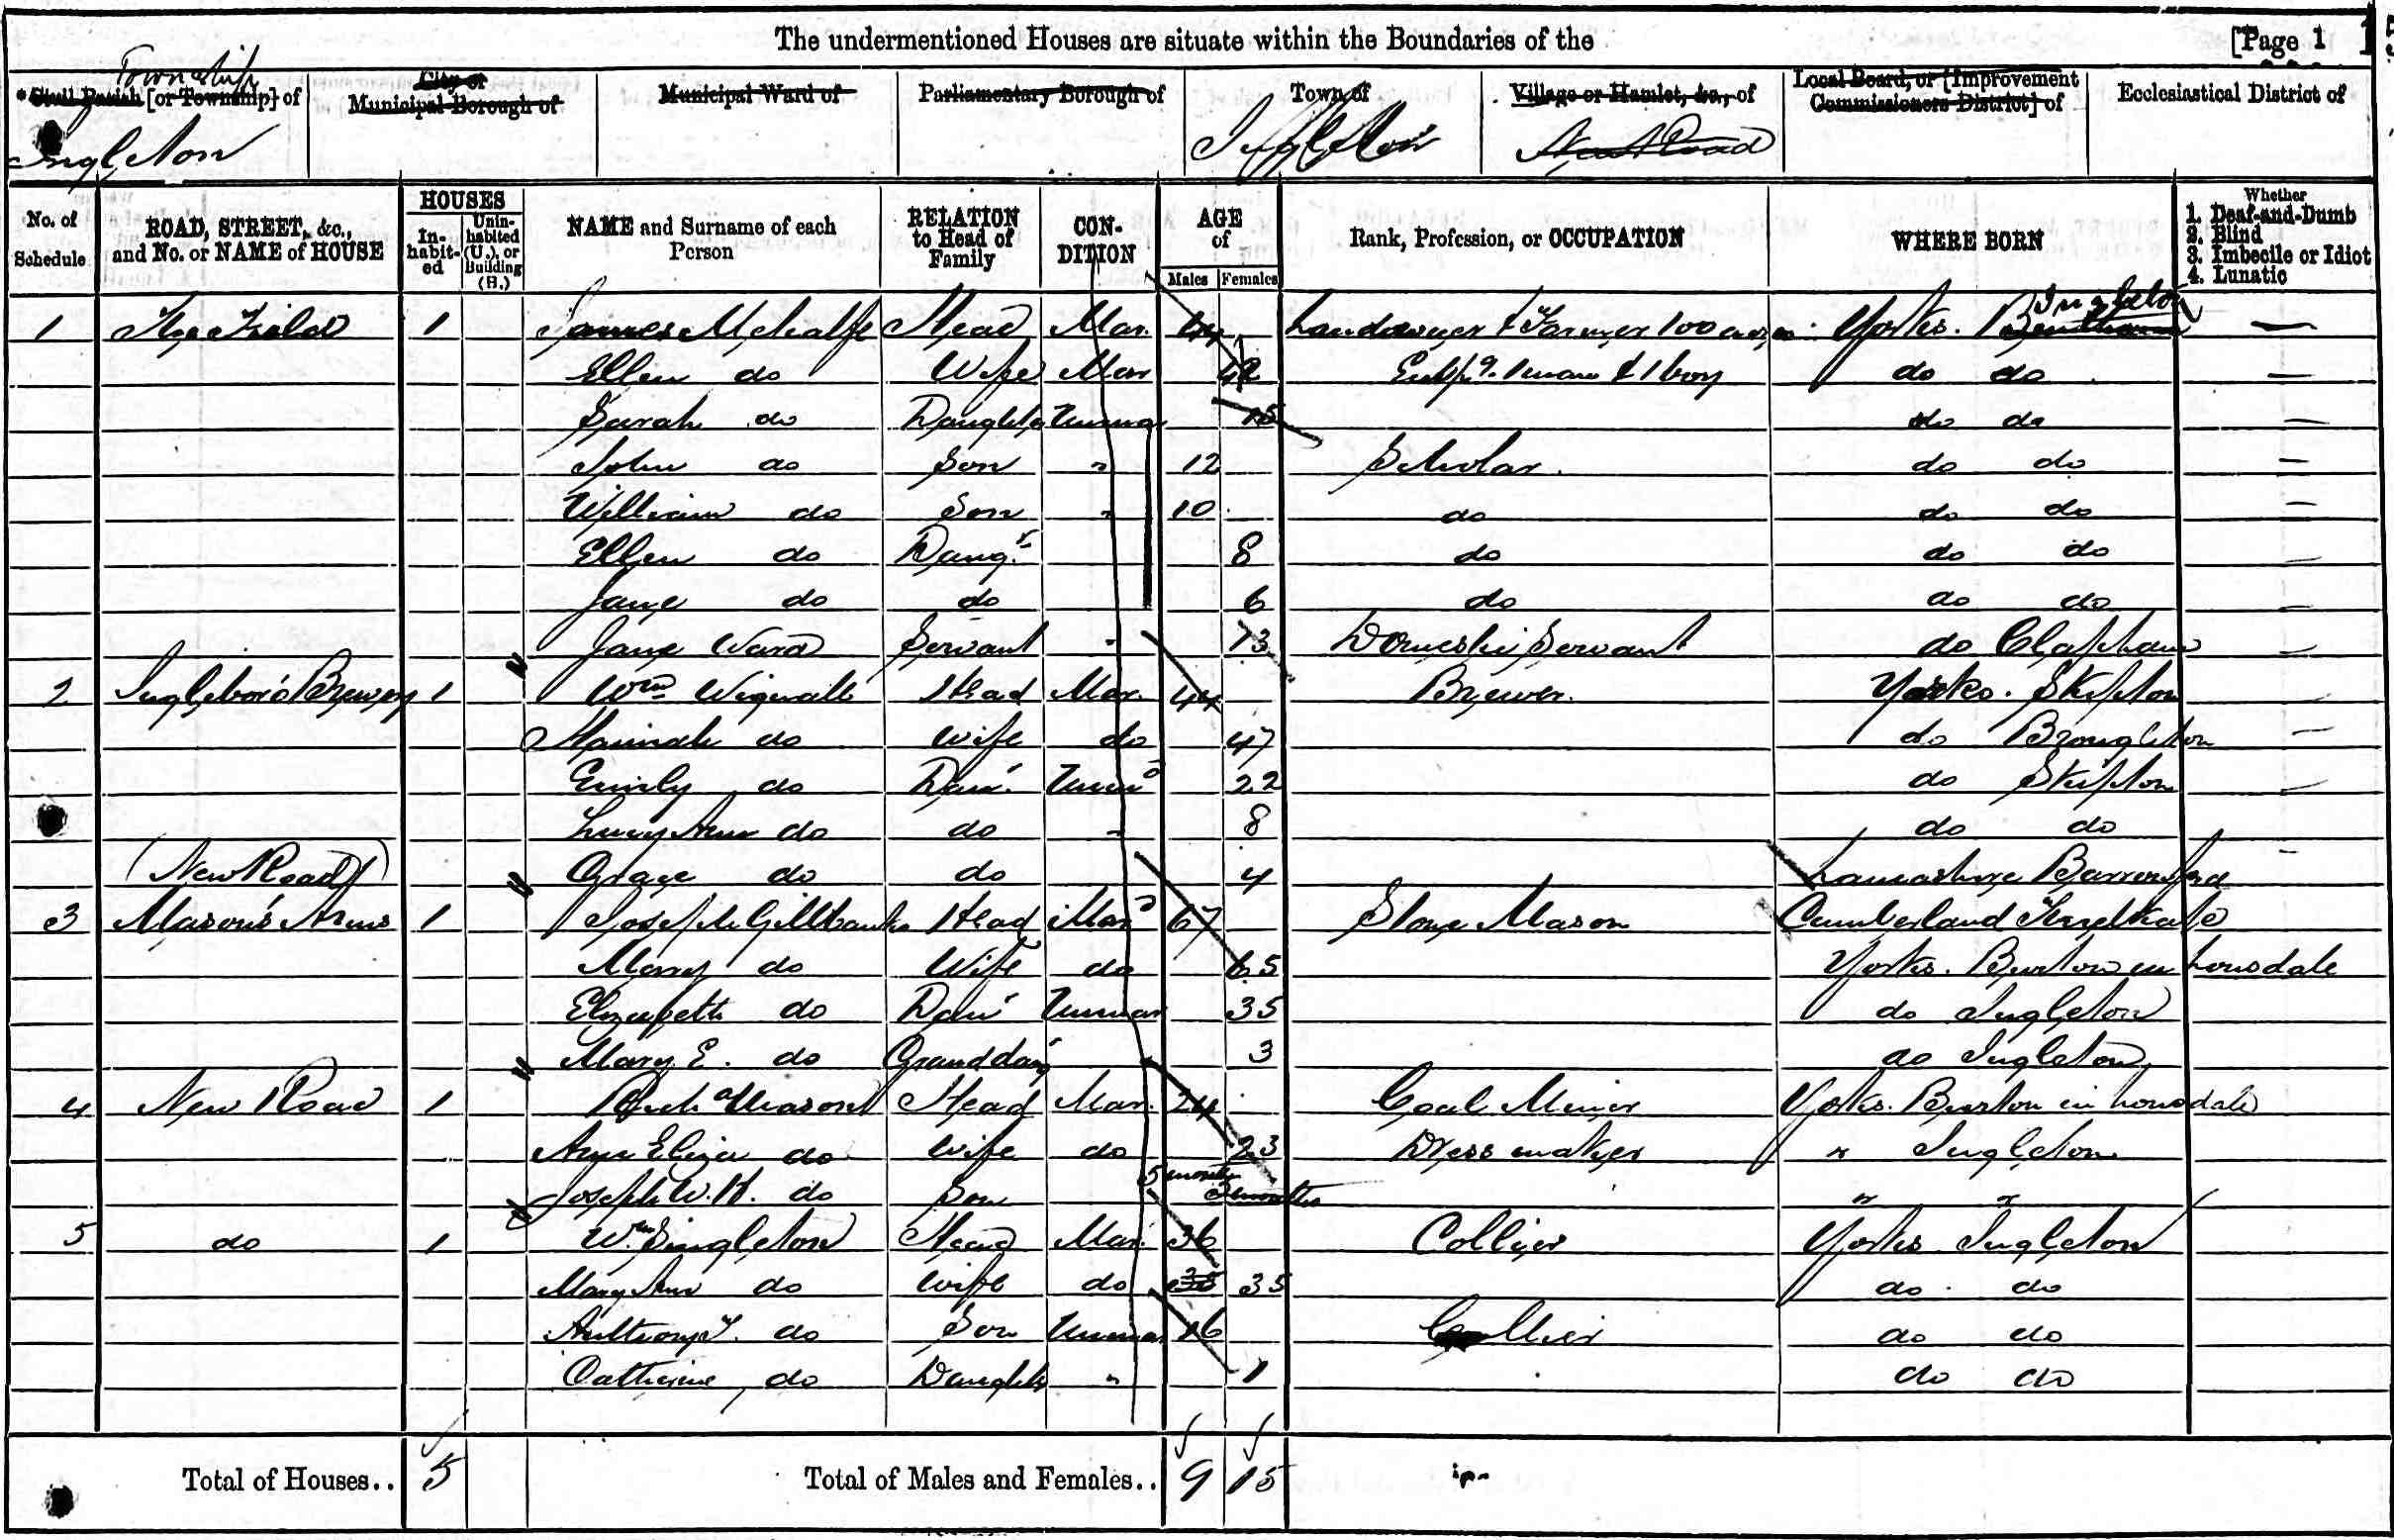 The undermentioned Houses are situate within the Boundaries of the [Page 1
Township
Civil Parish [or Township] of
City or Municipal Borough of
Municipal Ward of
Parliamentary Borough of
Town of
Village or Hamlet, &c., of
Local Board, or [Improvement Commissioners District] of
Ecclesiastical District of
Ingleton Ingleton New Road
No. of Schedule
ROAD, STREET, &c., and No. or NAME of HOUSE
HOUSES
In-habit-ed
Unin-habited (U.), or Building (B.)
NAME and Surname of each Person
RELATION to Head of Family
CON-DITION
AGE of
Males Females
Rank, Profession, or OCCUPATION
WHERE BORN
Whether
1. Deaf-and-Dumb
2. Blind
3. Imbecile or Idiot
4. Lunatic
Ingleton
1 1 James Metcalfe Head Mar. 44 Landowner & Farmer 100 acres Yorks. Bentham —
Ellen do Wife Mar 42 Emp.g 1 man & 1 boy do do —
Sarah do Daughter Unmar 15 do do —
John do Son " 12 Scholar. do do —
William do Son " 10 do do do —
Ellen do Daugr 8 do do do —
Jane do do 6 do do do —
Jane Ward Servant " 13 Domestic Servant do Clapham —
2 Ingleboro Brewery 1 Wm Head Mar. 44 Brewer. Yorks. Skipton
Hannah do Wife do 47 do Broughton —
Emily do Dau. Unm 22 do Skipton —
Lucy Ann do do " 8 do do
(New Road) Grace do do 4 Lancashire Barrowford
3 Mason's Arms 1 Joseph Gillbanks Head Mar 67 Stone Mason Cumberland
Mary do Wife do 65 Yorks. Burton in Lonsdale
Elizabeth do Dau Unmar 35 do Ingleton
Mary E. do Granddau 3 do Ingleton
4 New Road 1 Mason Head Mar. 24 Coal Miner Yorks. Burton in Lonsdale
Ann Eliza do Wife do 23 Dress maker " Ingleton
Joseph W. H. do Son 5 months 5 months " "
5 do 1 Wm Singleton Head Mar. 36 Collier Yorks Ingleton
Mary Ann do Wife do 35 35 do do
Anthony T. do Son Unmar 16 Collier do do
Catherine do Daughter " 1 do do
Total of Houses.. 5 Total of Males and Females.. 9 15